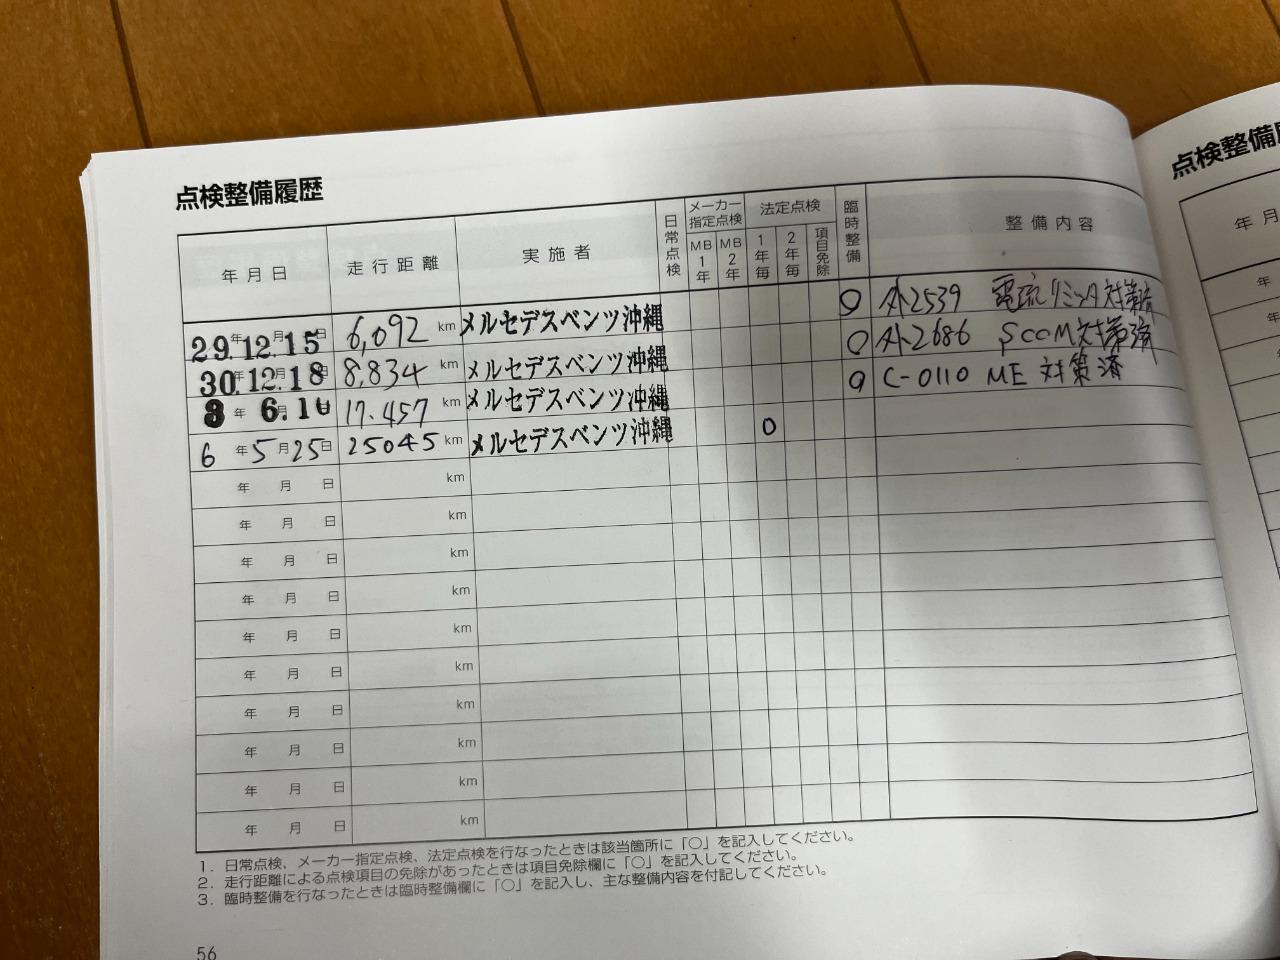 点検整備履歴
年月日 走行距離 実施者 日常点検 メーカー指定点検 MB1年 MB2年 法定点検 1年毎 2年毎 項目免除 臨時整備 整備内容
29年12月15日 6,092 km メルセデスベンツ沖縄 ○ 外2539 電流リミッタ対策済
30年12月18日 8,834 km メルセデスベンツ沖縄 ○ 外2686 SCCM対策済
年 6月 17.457 km メルセデスベンツ沖縄 ○ C-0110 ME 対策済
6年5月25日 25045 km メルセデスベンツ沖縄 ○
年 月 日 km
年 月 日 km
年 月 日 km
年 月 日 km
年 月 日 km
年 月 日 km
年 月 日 km
年 月 日 km
年 月 日 km
年 月 日 km
1. 日常点検、メーカー指定点検、法定点検を行なったときは該当箇所に「○」を記入してください。
2. 走行距離による点検項目の免除があったときは項目免除欄に「○」を記入してください。
3. 臨時整備を行なったときは臨時整備欄に「○」を記入し、主な整備内容を付記してください。
56
点検整備
年月
年
年
年
年
年
年
年